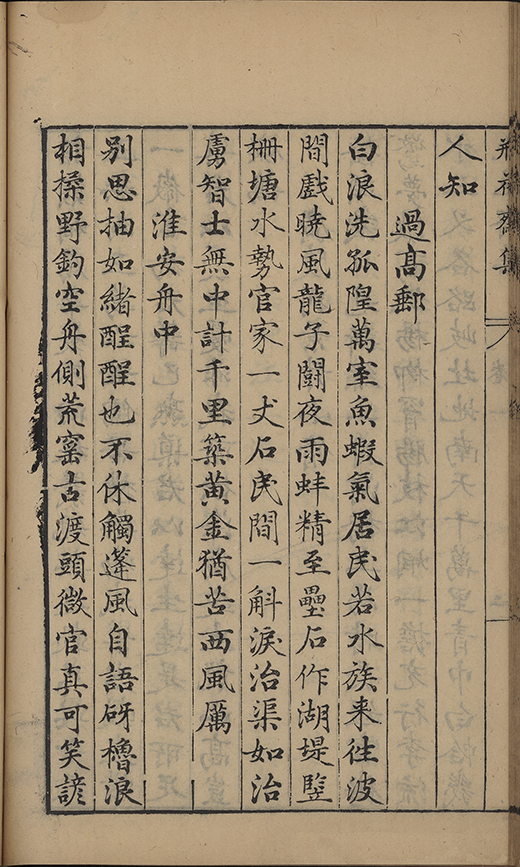 人知
過高郵
白浪洗孤隍萬室魚蝦氣居民若水族来徃波
間戲曉風龍子闘夜雨蚌精至壘石作湖堤竪
柵塘水勢官家一丈石民間一斛淚治渠如治
虜智士無中計千里築黄金猶苦西風厲
淮安舟中
别思抽如緒酲酲也不休觸蓬風自語砑櫓浪
相揉野釣空舟側荒窰古渡頭微官真可笑諺